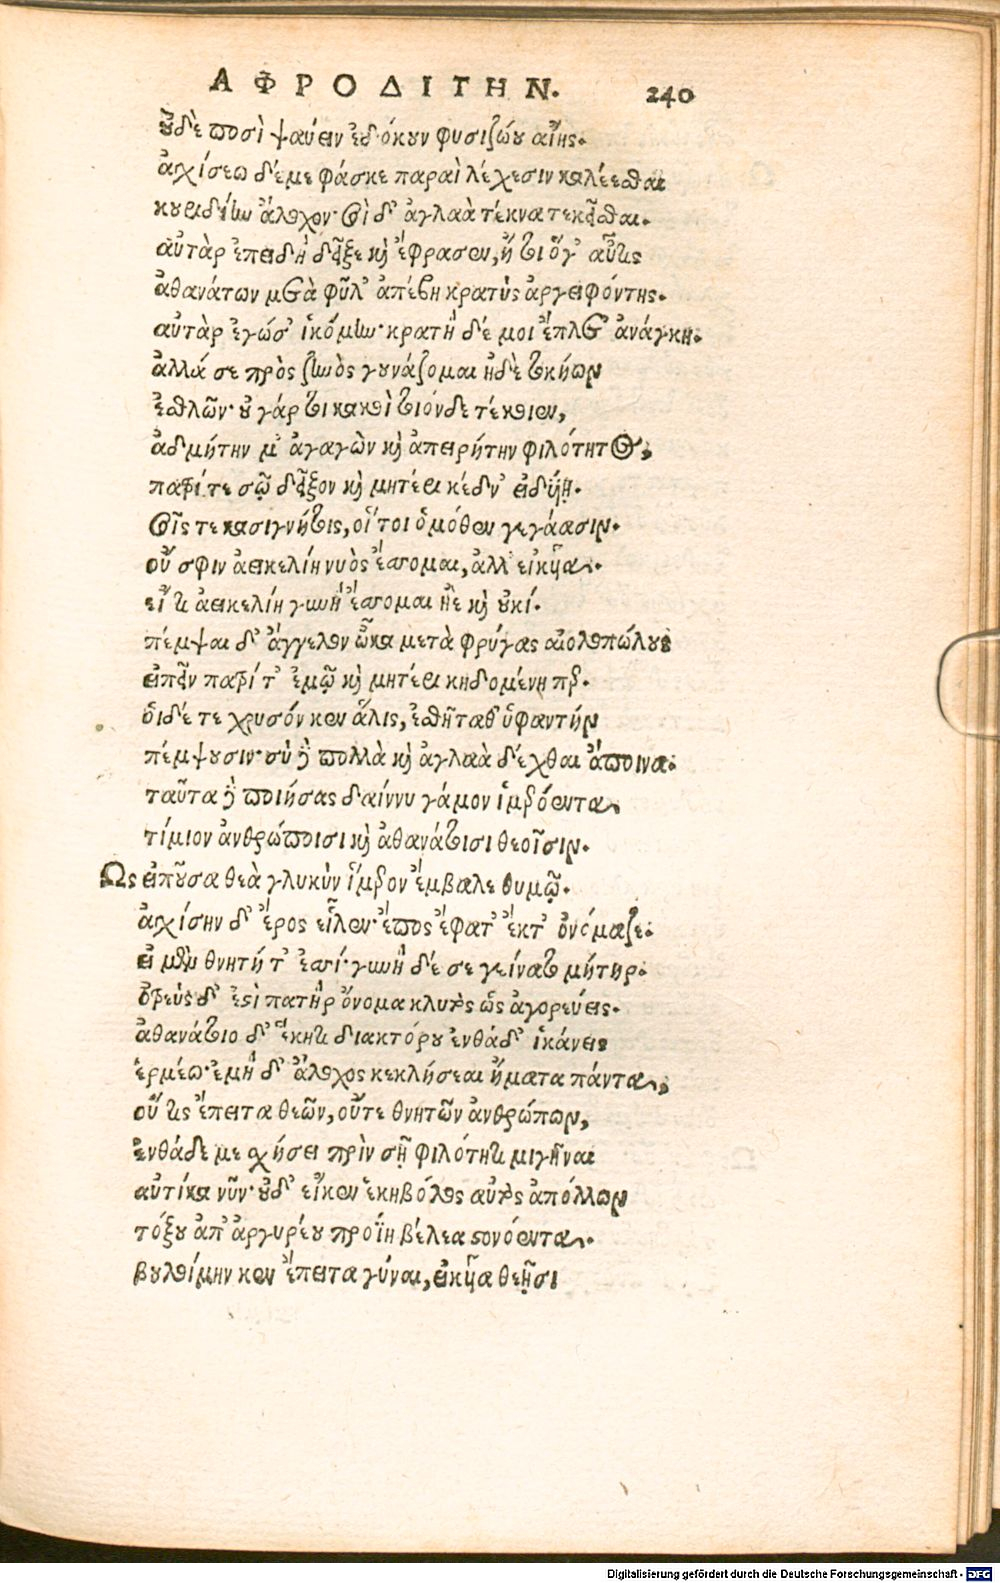 ΑΦΡΟΔΙΤΗΝ. 240
οὐδὲ ποσὶ ψαύειν ἐδόκουν φυσιζώου αἴης.
ἀγχίσεω δέ με φάσκε παραὶ λέχεσιν καλέεσθαι
κουριδίην ἄλοχον· σοὶ δ' ἀγλαὰ τέκνα τεκεῖσθαι.
αὐτὰρ ἐπειδὴ δεῖξε καὶ ἔφρασεν, ἤτοι ὅγ' αὖτις
ἀθανάτων μετὰ φῦλ' ἀπέβη κρατὺς ἀργειφόντης.
αὐτὰρ ἐγώ σ' ἱκόμην· κρατὴ δέ μοι ἔπλετ' ἀνάγκη.
ἀλλά σε πρὸς ζηνὸς γουνάζομαι ἠδὲ τοκήων
ἐσθλῶν· οὐ γάρ τοι κακοὶ τοιόνδε τέκοιεν,
ἀδμήτην μ' ἀγαγὼν καὶ ἀπειρήτην φιλότητος,
πατρί τε σῷ δεῖξον καὶ μητέρι κέδν' εἰδυίῃ.
σοῖς τε κασιγνήτοις, οἵ τοι ὁμόθεν γεγάασιν.
οὔ σφιν ἀεικελίη νυὸς ἔσσομαι, ἀλλ' εἰκυῖα.
εἴ τι ἀεικελίη γυνὴ ἔσσομαι ἠὲ καὶ οὐκί.
πέμψαι δ' ἄγγελον ὦκα μετὰ φρύγας αἰολοπώλους
εἰπεῖν πατρί τ' ἐμῷ καὶ μητέρι κηδομένη περ.
οἱ δέ τε χρυσόν κεν ἅλις, ἐσθῆτα θ' ὑφαντὴν
πέμψουσιν· σὺ δὲ πολλὰ καὶ ἀγλαὰ δέχθαι ἄποινα.
ταῦτα δὲ ποιήσας δαίνυ γάμον ἱμερόεντα
τίμιον ἀνθρώποισι καὶ ἀθανάτοισι θεοῖσιν.
Ως εἰποῦσα θεὰ γλυκὺν ἵμερον ἔμβαλε θυμῷ.
ἀγχίσην δ' ἔρος εἷλεν· ἔπος ἔφατ' ἔκτ' ὀνόμαζε.
εἰ μὲν θνητή τ' ἐσσί· γυνὴ δέ σε γείνατο μήτηρ.
ὀτρεὺς δ' ἐστὶ πατὴρ ὄνομα κλυτὸς ὡς ἀγορεύεις.
ἀθανάτοιο δ' ἕκητι διακτόρου ἐνθάδ' ἱκάνεις
ἑρμέω· ἐμὴ δ' ἄλοχος κεκλήσεαι ἤματα πάντα,
οὔ τις ἔπειτα θεῶν, οὔτε θνητῶν ἀνθρώπων,
ἐνθάδε με σχήσει πρὶν σῇ φιλότητι μιγῆναι
αὐτίκα νῦν· οὐδ' εἴκεν ἑκηβόλος αὐτὸς ἀπόλλων
τόξου ἀπ' ἀργυρέου προΐη βέλεα στονόεντα.
βουλοίμην κεν ἔπειτα γύναι, εἰκυῖα θεῇσι
Digitalisierung gefördert durch die Deutsche Forschungsgemeinschaft - DFG